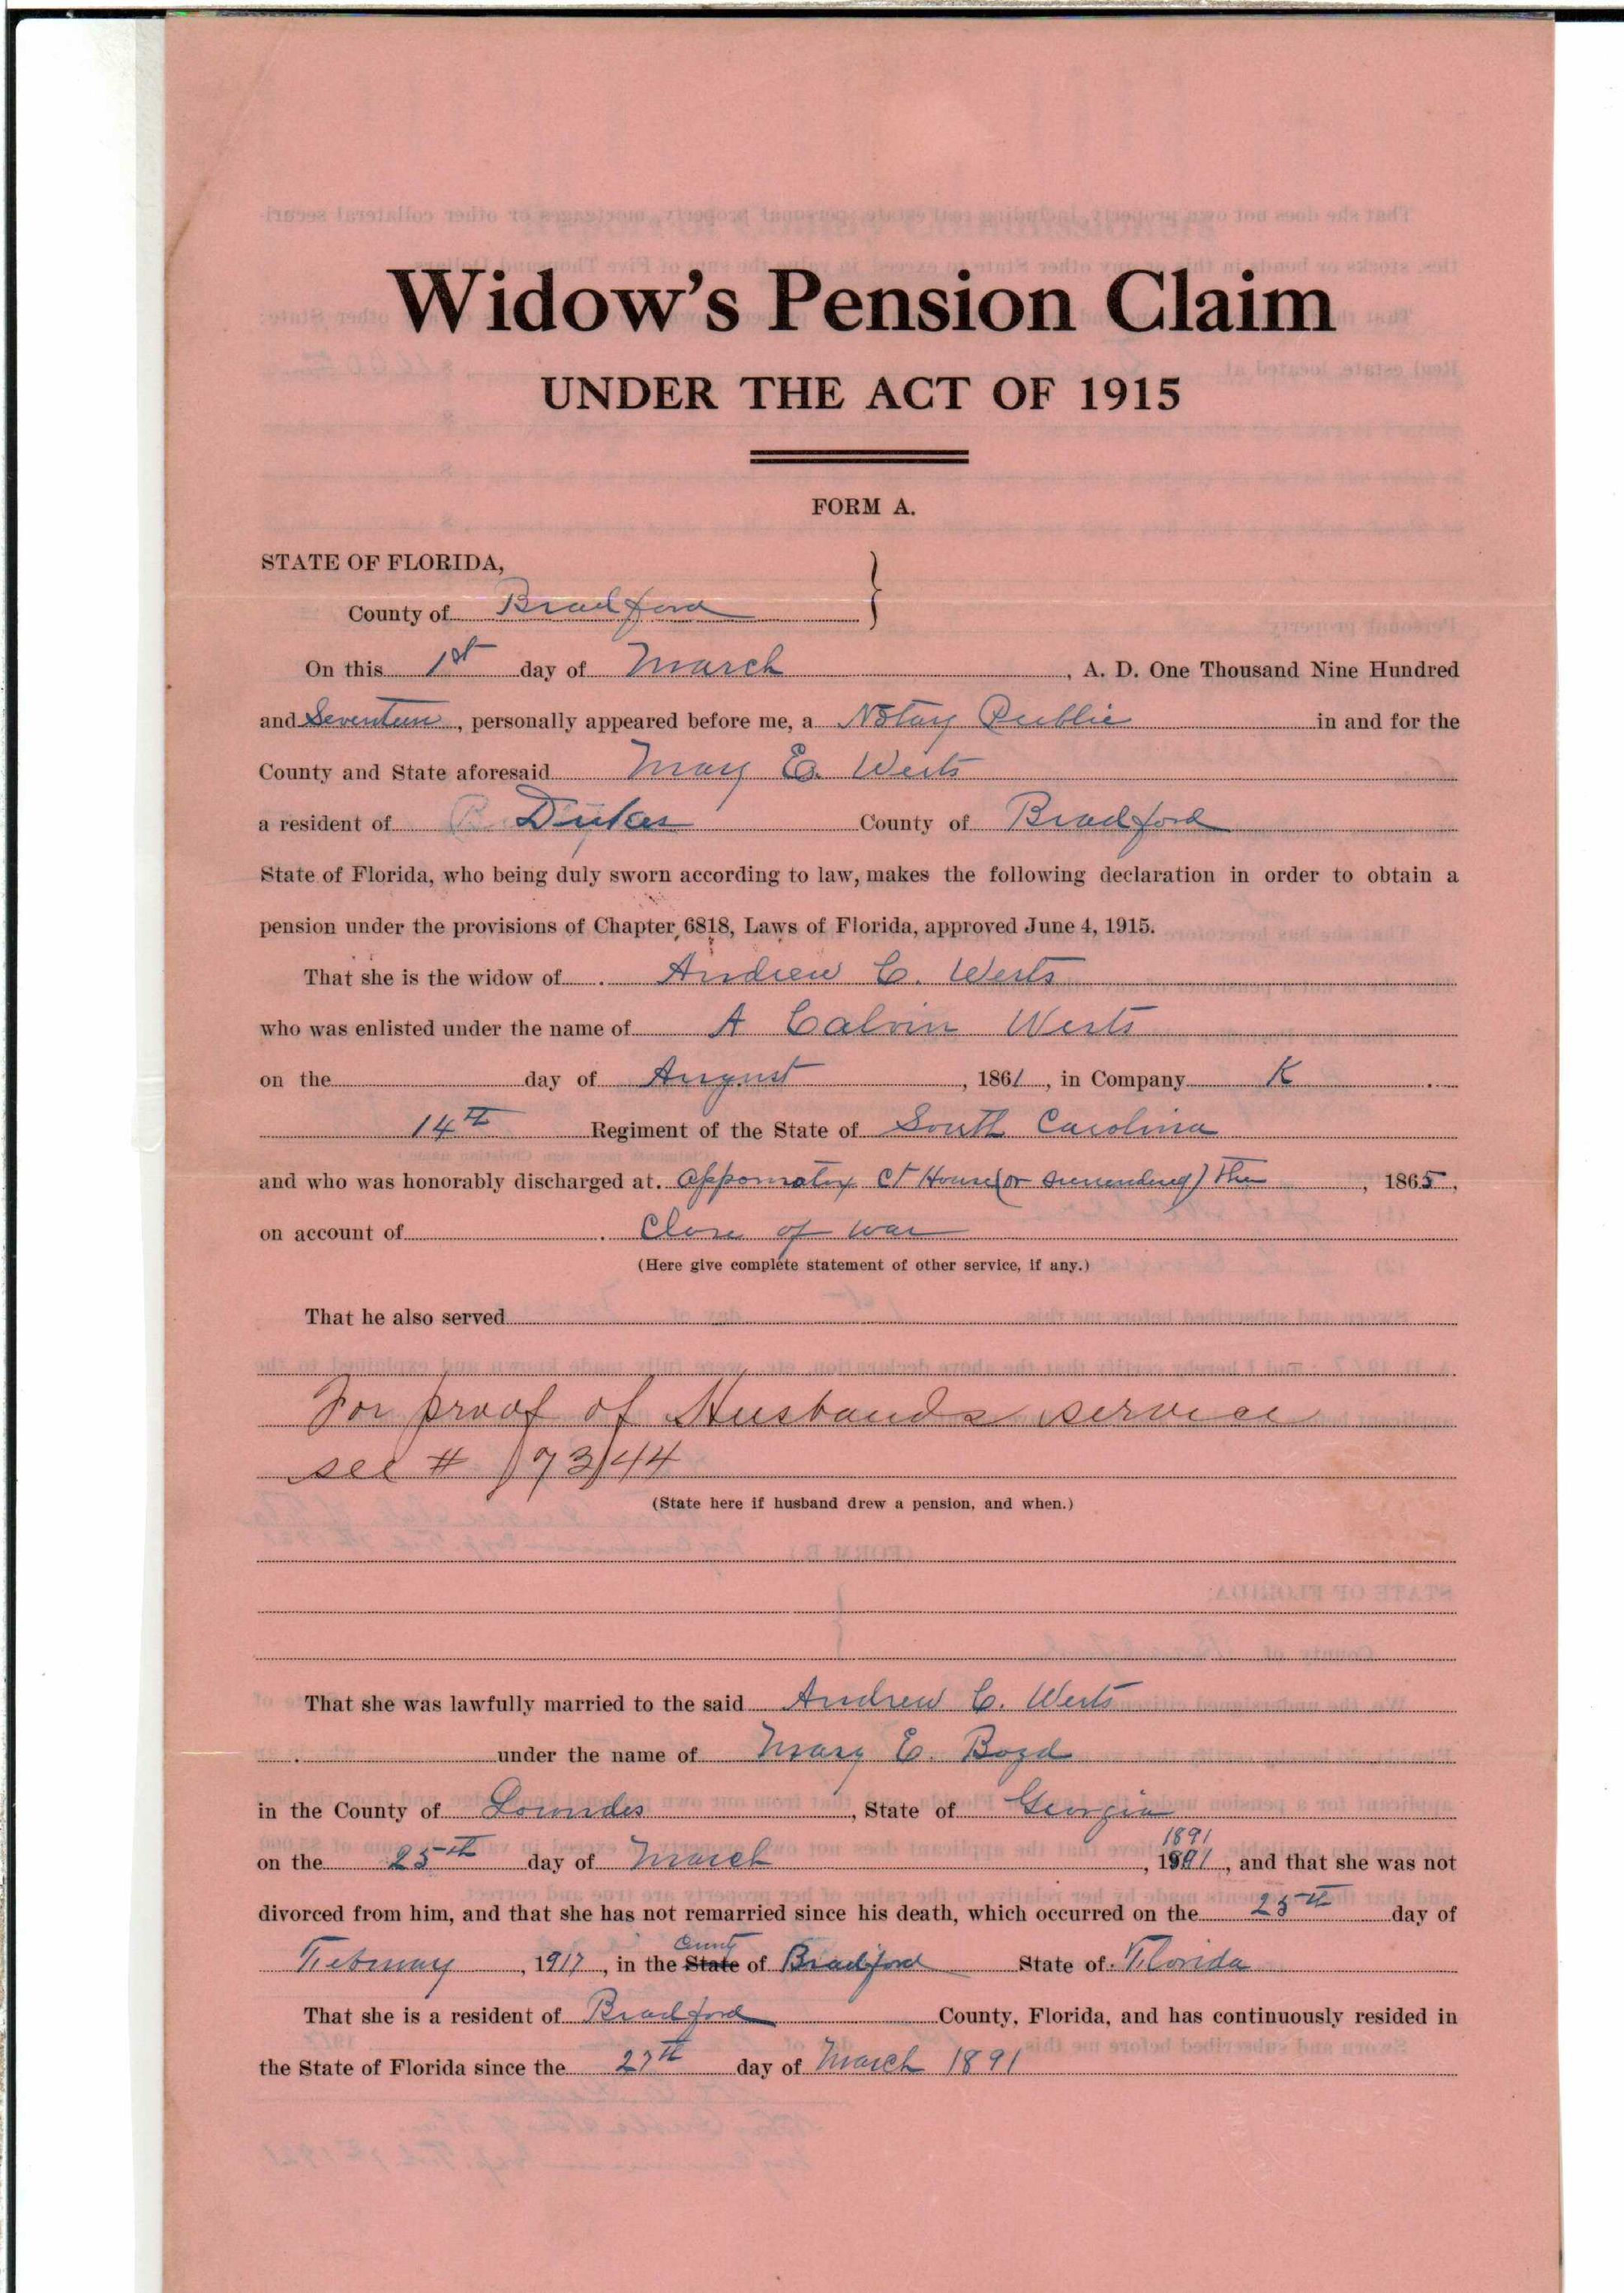 Widow's Pension Claim
UNDER THE ACT OF 1915
FORM A.
STATE OF FLORIDA,
County of Bradford
On this 1st day of March, A. D. One Thousand Nine Hundred
and Seventeen, personally appeared before me, a Notary Public in and for the
County and State aforesaid Mary E. Werts
a resident of Dukes County of Bradford
State of Florida, who being duly sworn according to law, makes the following declaration in order to obtain a
pension under the provisions of Chapter 6818, Laws of Florida, approved June 4, 1915.
That she is the widow of Andrew C. Werts
who was enlisted under the name of A Calvin Werts
on the day of August, 1861, in Company K
14th Regiment of the State of South Carolina
and who was honorably discharged at Appomatox Ct House (or surrendered) the, 1865,
on account of Close of war
(Here give complete statement of other service, if any.)
That he also served
For proof of Husbands service
see # 173144
(State here if husband drew a pension, and when.)
That she was lawfully married to the said Andrew C. Werts
under the name of Mary E. Boyd
in the County of Lowndes, State of Georgia
1891
on the 25th day of March, 1891, and that she was not
divorced from him, and that she has not remarried since his death, which occurred on the 25th day of
County
February, 1917, in the State of Bradford State of Florida
That she is a resident of Bradford County, Florida, and has continuously resided in
the State of Florida since the 27th day of March 1891